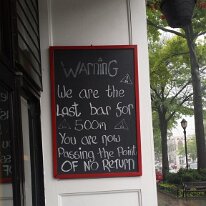 Warning
We are the
Last bar for
500m
You are now
Passing the Point
OF NO RETURN